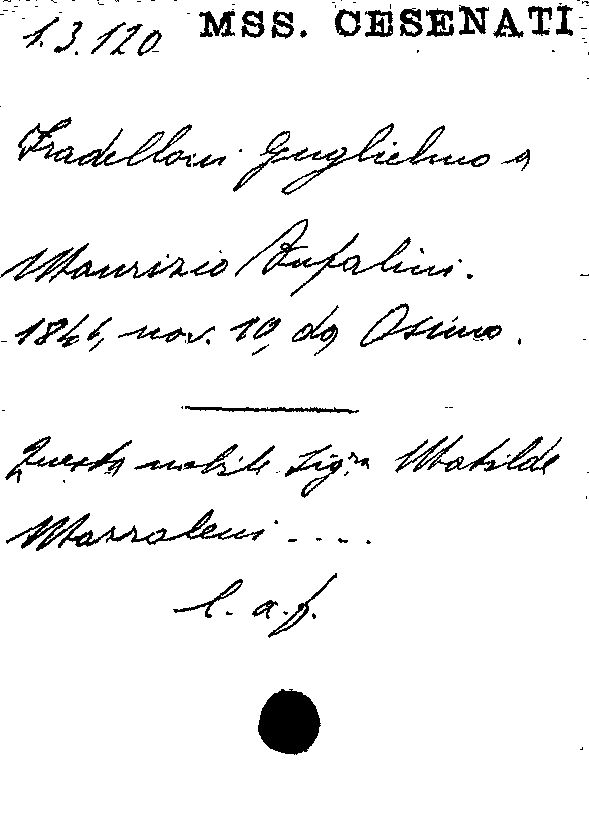 1.3.120 MSS. CESENATI
Fradelloni Guglielmo a
Maurizio Bufalini.
1846, nov. 10, da Osimo.
Questa nobile Sig.ra Matilde
.....
l. a. f.